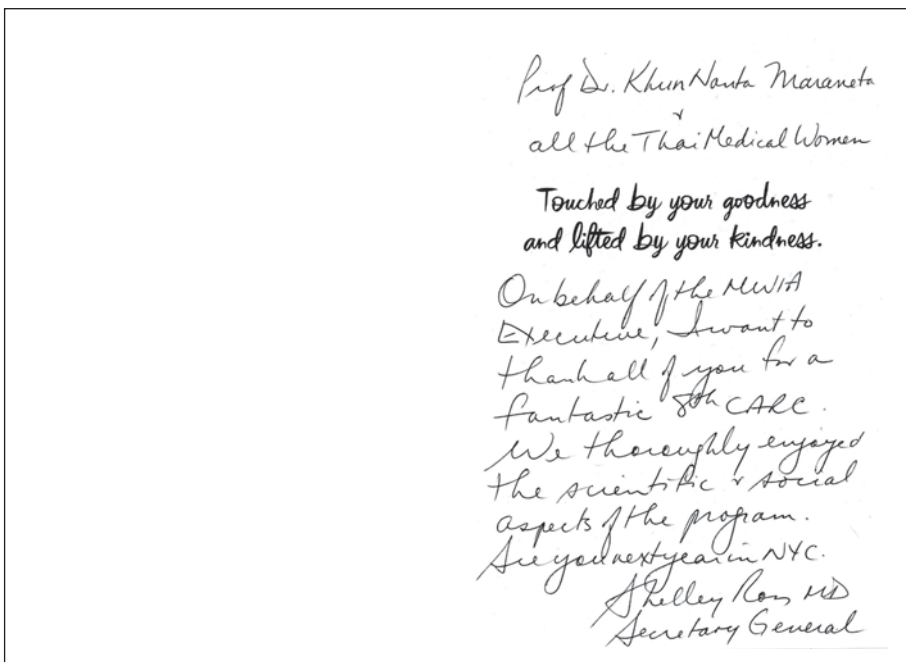 Prof Dr. Khun Nanta Maraneta
&
all the Thai Medical Women
Touched by your goodness
and lifted by your kindness.
On behalf of the MWIA
Executive, I want to
thank all of you for a
fantastic 8th CARC.
We thoroughly enjoyed
the scientific & social
aspects of the program.
See you next year in NYC.
Shelley Ross MD
Secretary General